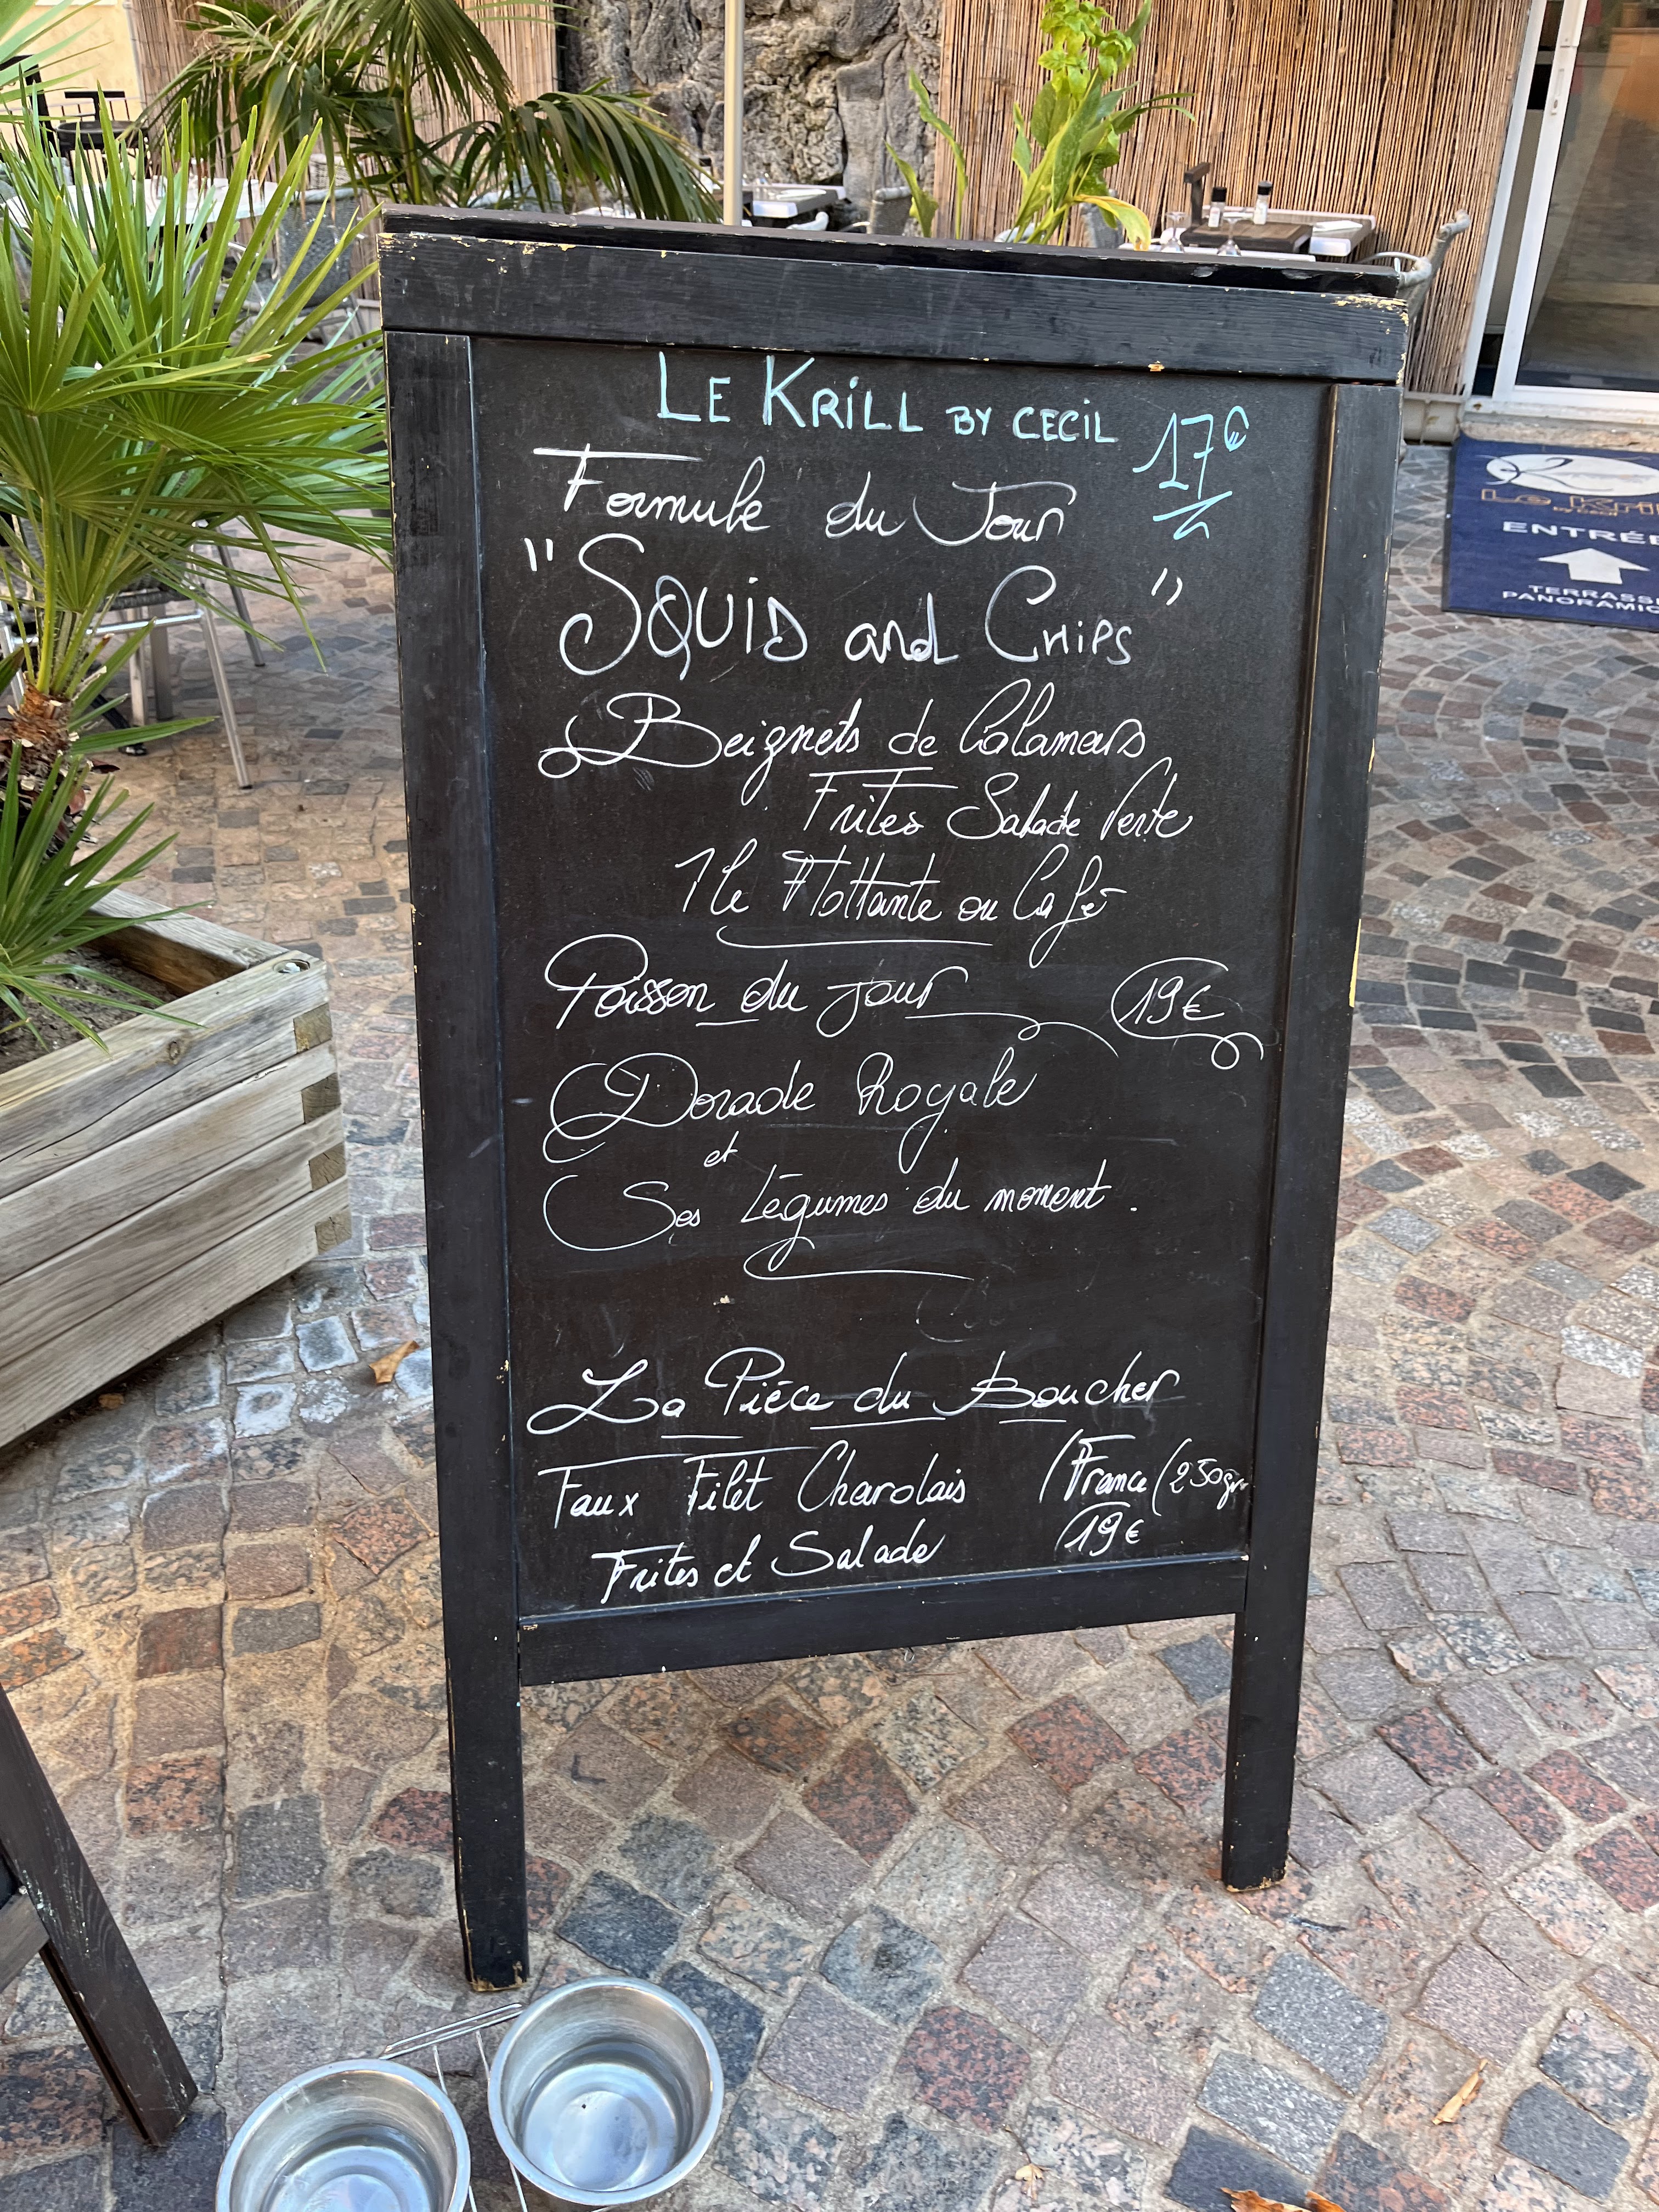 LE KRiLL BY CECiL
17€
Formule du Jour
"SQUID and CHIPS"
Beignets de Calamars
Frites Salade Verte
Ile Flottante ou Café
Poisson du jour 19€
Dorade Royale
et
Ses Légumes du moment.
La Pièce du Boucher
Faux Filet Charolais (France (250gr
Frites et Salade 19€
Le Kril
ENTRÉE
TERRASSE
PANORAMIQ